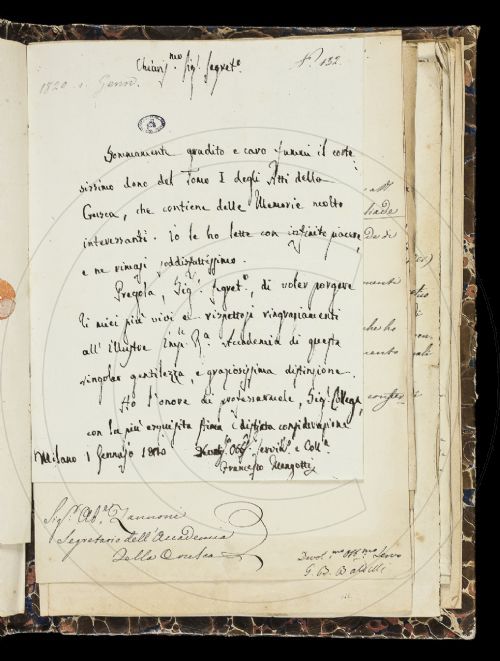 Chiariss.mo Sig.r Segret.o
N.o 132.
1820. 1. Genn.
Sommamente gradito e caro fummi il corte-
sissimo dono del Tomo I degli Atti della
Crusca, che contiene delle Memorie molto
interessanti. Io le ho lette con infinito piacere,
e ne rimasi soddisfattissimo.
Pregola, Sig.r Segret.o, di voler porgere
li miei più vivi e rispettosi ringraziamenti
all'illustre Imp.le R.a Accademia di questa
singolar gentilezza, e graziosissima distinzione.
Ho l'onore di protestarmele, Sig.r Collega,
con la più esquisita stima e distinta considerazione
Milano 1 Gennajo 1820
Obb.o Servid.e e Coll.a
Francesco Mengotti
Sig.r Ab.e Zannoni
Segretario dell'Accademia
Della Crusca
Devol.mo Obb.mo Servo
G. B. Baldelli